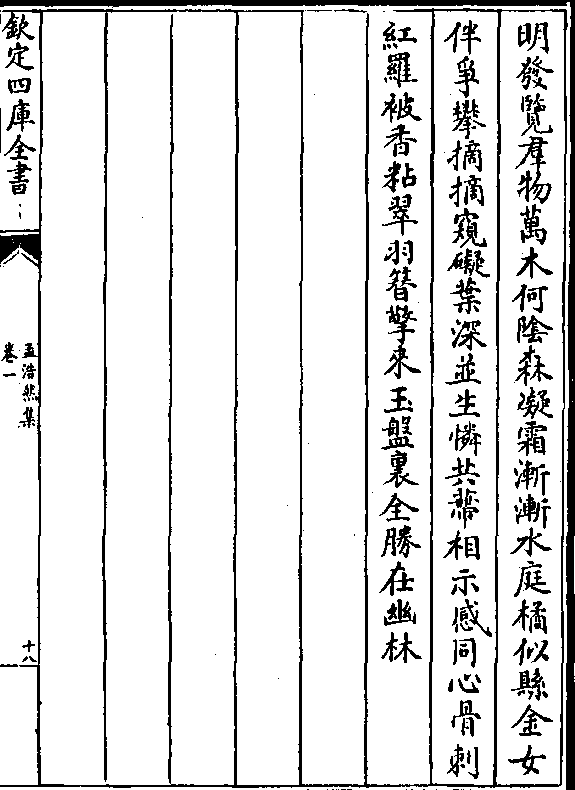 明發覽羣物萬木何陰森凝霜漸漸水庭橘似縣金女
伴爭攀摘摘窺礙葉深並生憐共蔕相示感同心骨刺
紅羅被香粘翠羽簪擎來玉盤裏全勝在幽林
欽定四庫全書
孟浩然集
卷一
十八